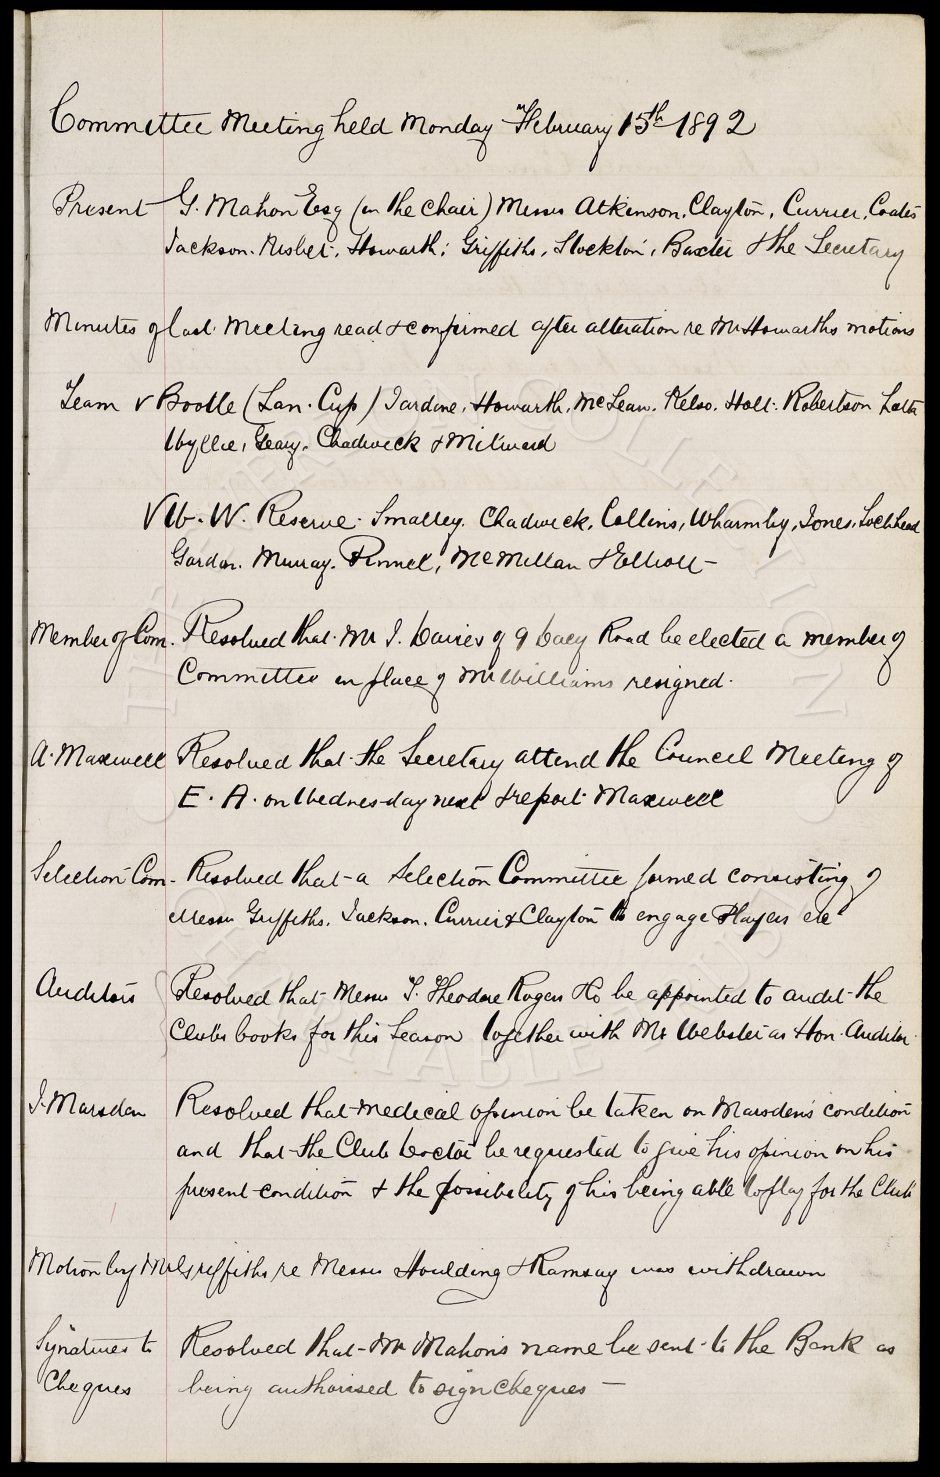 Committee Meeting held Monday February 15th 1892
Present G. Mahon Esq (in the chair) Messrs Atkinson, Clayton, Currier, Coates
Jackson. Nisbet, Howarth, Griffiths, Stockton, Baxter & the Secretary
Minutes of last Meeting read & confirmed after alteration re Mr Howarths motions
Team v Bootle (Lan. Cup) Jardine, Howarth, McLean, Kelso, Holt. Robertson Latta
Wyllie, Geary, Chadwick & Milward
V W. W. Reserve. Smalley. Chadwick, Collins, Wharmby, Jones, Lochhead
Gordon. Murray. Pinnel, McMillan & Elliott -
Member of Com. Resolved that Mr J. Davies of 9 Dacy Road be elected a member of
Committee in place of Mr Williams resigned.
A. Maxwell Resolved that the Secretary attend the Council Meeting of
E. A. on Wednesday next & report Maxwell
Selection Com - Resolved that a Selection Committee formed consisting of
Messrs Griffiths, Jackson, Currier & Clayton to engage Players etc
Auditors Resolved that Messrs T. Theodore Rogers & Co be appointed to audit the
Club's books for this Season together with Mr Webster as Hon. Auditor.
J. Marsden Resolved that medical opinion be taken on Marsden's condition
and that the Club Doctor be requested to give his opinion on his
present condition & the possibility of his being able to play for the Club
Motion by Mr Griffiths re Messrs Houlding & Ramsay was withdrawn
Signatures to Resolved that Mr Mahon's name be sent to the Bank as
Cheques being authorised to sign cheques -
THE EVERTON COLLECTION
CHARITABLE TRUST